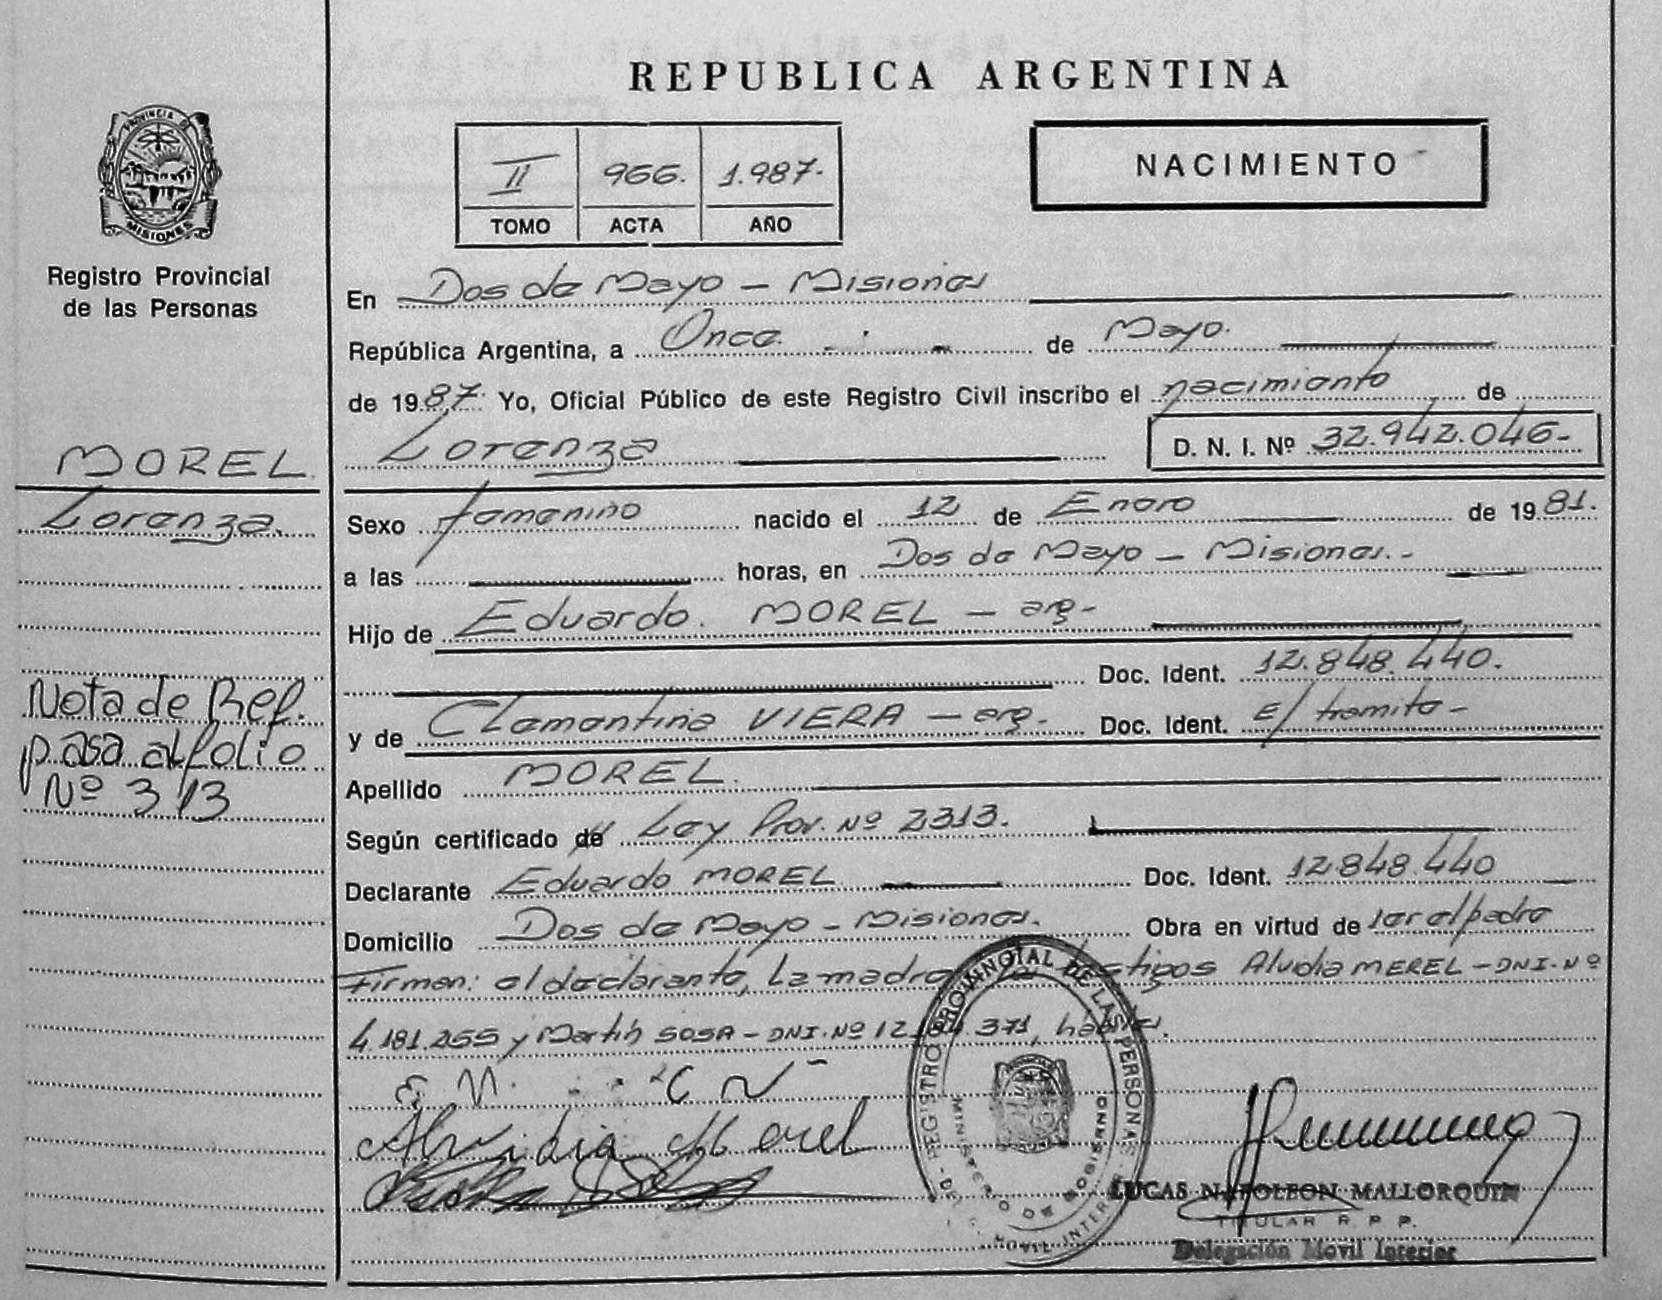 REPUBLICA ARGENTINA
PROVINCIA DE
MISIONES
Registro Provincial
de las Personas
II 966. 1.987.
TOMO ACTA AÑO
NACIMIENTO
En Dos de Mayo - Misiones
República Argentina, a Once de Mayo.
de 1987. Yo, Oficial Público de este Registro Civil inscribo el nacimiento de
Lorenza D. N. I. Nº 32.942.046-
MOREL
Lorenza.
Sexo femenino nacido el 12 de Enero de 1981.
a las horas, en Dos de Mayo - Misiones.-
Hijo de Eduardo. MOREL - arg-
Doc. Ident. 12.848.440.
y de Clementina VIERA - arg. Doc. Ident. E/ tramite-
Nota de Ref.
pasa al folio
Nº 313
Apellido MOREL.
Según certificado de Ley Prov. Nº 2313.
Declarante Eduardo MOREL Doc. Ident. 12.848.440
Domicilio Dos de Mayo - Misiones. Obra en virtud de ser el padre
Firman: el declarante, La madre testigos Aluidia MEREL - DNI. Nº
4.181.255 y Martín SOSA - DNI. Nº 371, hábiles.
E M. C V
Aluidia Morel
REGISTRO PROVINCIAL DE LAS PERSONAS
LUCAS NAPOLEON MALLORQUIN
TITULAR R. P. P.
Delegación Movil Interior